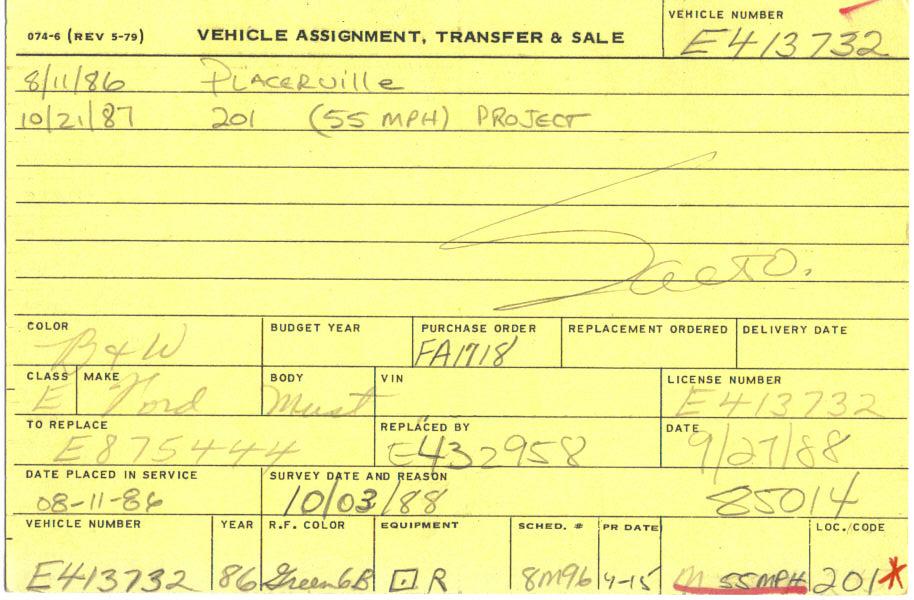 074-6 (REV 5-79) VEHICLE ASSIGNMENT, TRANSFER & SALE
VEHICLE NUMBER
E413732
8/11/86 PLACERVILLE
10/21/87 201 (55 MPH) PROJECT
Sacto.
COLOR BUDGET YEAR PURCHASE ORDER REPLACEMENT ORDERED DELIVERY DATE
B+W FA1718
CLASS MAKE BODY VIN LICENSE NUMBER
E Ford Must E413732
TO REPLACE REPLACED BY DATE
E875444 E432958 9/27/88
DATE PLACED IN SERVICE SURVEY DATE AND REASON
08-11-86 10/03/88 85014
VEHICLE NUMBER YEAR R.F. COLOR EQUIPMENT SCHED. # PR DATE LOC./CODE
E413732 86 Green6B R 8M96 4-15 M 55MPH 201*